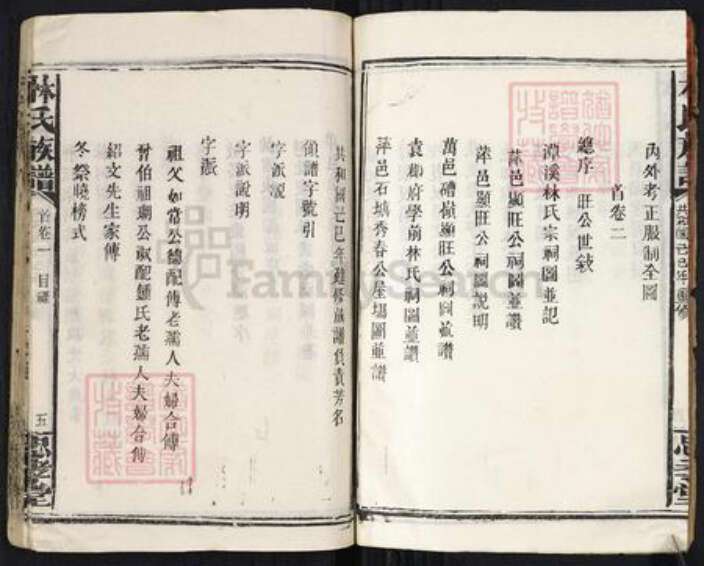 內外考正服制全圖
首卷二
總序 旺公世敘
潭溪林氏宗祠圖並記
萍邑顯旺公祠圖並讚
萍邑顯旺公祠圖説明
萬邑禮嶺顯旺公祠圖並讚
袁州府學前林氏祠圖並讚
萍邑石塘秀春公屋場圖並讚
共和國己巳年建修族譜負責芳名
領譜字號引
字派説
字派説明
字派
祖父如常公德配傅老孺人夫婦合傳
晉伯祖瑚公淑配鍾氏老孺人夫婦合傳
紹文先生家傳
冬祭曉榜式
林氏族譜
首卷一 目錄
五
思孝堂
FamilySearch